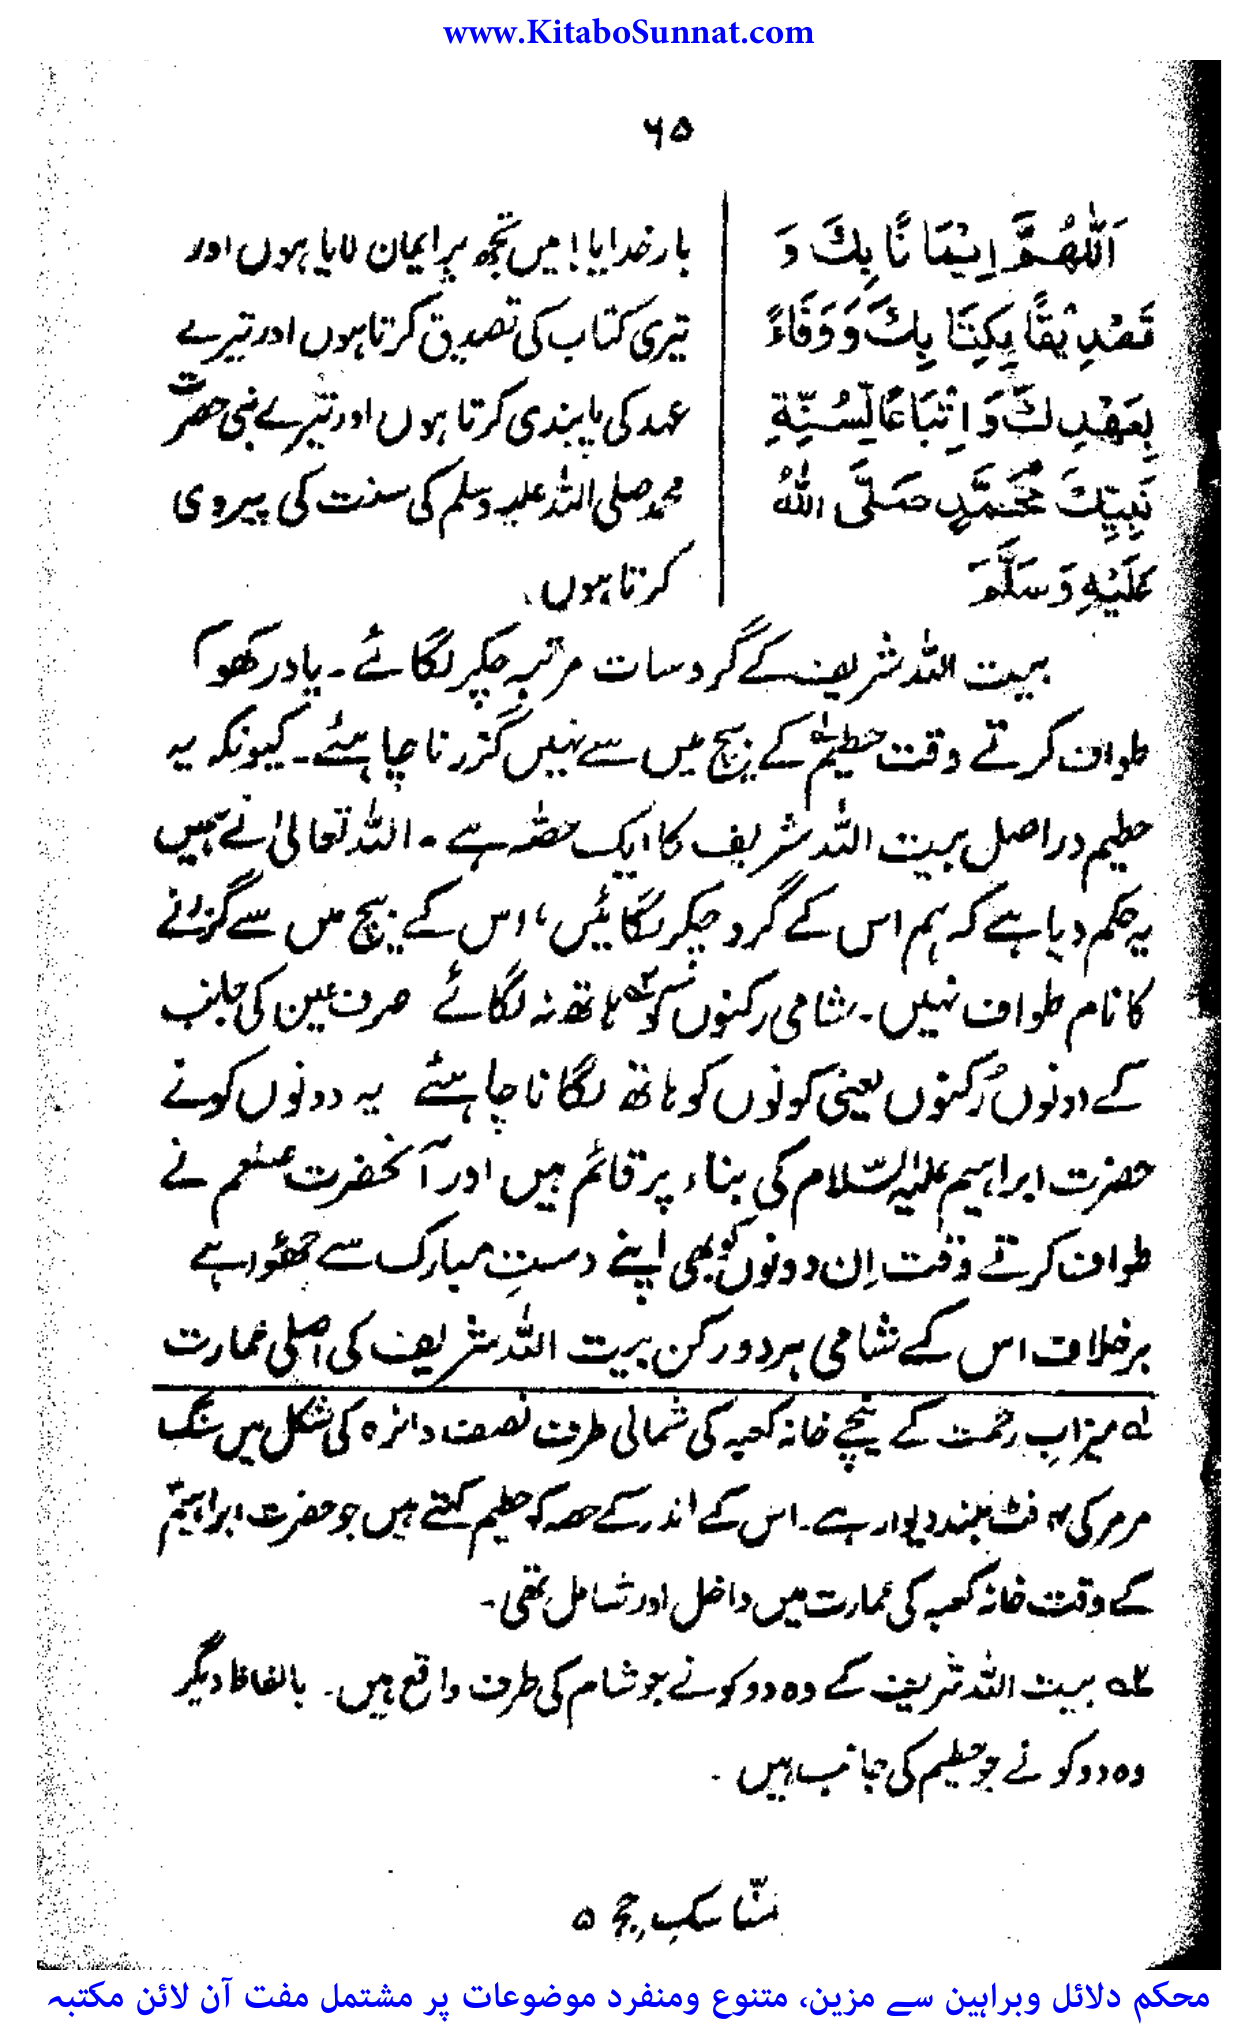 www.KitaboSunnat.com
۶۵
اَللّٰهُمَّ اِيْمَانًا بِكَ وَ
تَصْدِيْقًا بِكِتَابِكَ وَوَفَاءً
بِعَهْدِكَ وَاِتْبَاعًا لِّسُنَّةِ
نَبِيِّكَ مُحَمَّدٍ صَلَّى اللّٰهُ
عَلَيْهِ وَسَلَّمَ
بار خدایا! میں تجھ پر ایمان لایا ہوں اور
تیری کتاب کی تصدیق کرتا ہوں اور تیرے
عہد کی پابندی کرتا ہوں اور تیرے نبی حضرت
محمد صلی اللہ علیہ وسلم کی سنت کی پیروی
کرتا ہوں۔
بیت اللہ شریف کے گرد سات مرتبہ چکر لگائے۔ یاد رکھو!
طواف کرتے وقت حطیم ۱؎ کے بیچ میں سے نہیں گزرنا چاہئے۔ کیونکہ یہ
حطیم دراصل بیت اللہ شریف کا ایک حصّہ ہے۔ اللہ تعالیٰ نے ہمیں
یہ حکم دیا ہے کہ ہم اس کے گرد چکر لگائیں، اس کے بیچ میں سے گزرنے
کا نام طواف نہیں۔ شامی رکنوں ۲؎ کو ہاتھ نہ لگائے صرف یمین کی جانب
کے دونوں رُکنوں یعنی کونوں کو ہاتھ لگانا چاہئے یہ دونوں کونے
حضرت ابراہیم علیہ السّلام کی بناء پر قائم ہیں اور آنحضرت صلعم نے
طواف کرتے وقت اِن دونوں کو بھی اپنے دستِ مبارک سے چھؤا ہے
برخلاف اس کے شامی ہر دو رکن بیت اللہ شریف کی اصلی عمارت
۱؎ میزابِ رحمت کے نیچے خانہ کعبہ کی شمالی طرف نصف دائرہ کی شکل میں سنگ
مرمر کی ۴ فٹ بلند دیوار ہے۔ اس کے اندر کے حصہ کو حطیم کہتے ہیں جو حضرت ابراہیمؑ
کے وقت خانہ کعبہ کی عمارت میں داخل اور شامل تھی۔
۲؎ بیت اللہ شریف کے وہ دو کونے جو شام کی طرف واقع ہیں۔ بالفاظ دیگر
وہ دو کونے جو حطیم کی جانب ہیں۔
مناسکِ حج ۵
محکم دلائل وبراہین سے مزین، متنوع ومنفرد موضوعات پر مشتمل مفت آن لائن مکتبہ